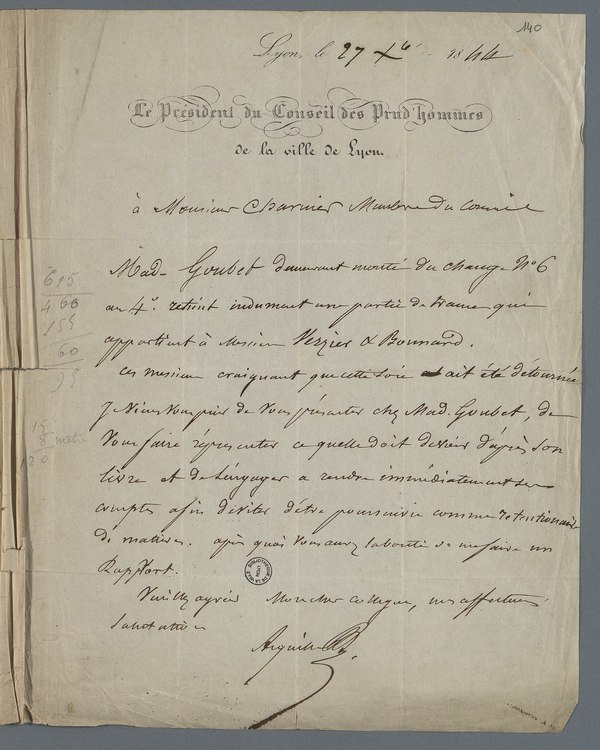 140
Lyon, le 27 Xbre 1844
Le Président du Conseil des Prud'hommes
de la ville de Lyon.
à Monsieur Charnier Membre du Conseil
Mad. Goubet demeurant montée du change N° 6
au 4e. retient indument une partie de trame qui
appartient à Messieurs Verzier & Bonnard.
ces messieurs craignant que cette soie ait été détournée
je viens vous prier de vous présenter chez Mad. Goubet, de
vous faire représenter ce quelle doit devoir d'après son
livre et de l'engager a rendre immédiatement ses
comptes afin d'éviter d'être poursuivie comme retentionnaire
de matières. après quoi vous aurez la bonté de me faire un
Rapport.
Veuillez agréer Mon cher collegue, mes affectueuses
salutations
615
460
155
60
95
15
8 mètre
120
BIBLIOTHEQUE DE LA VILLE LYON